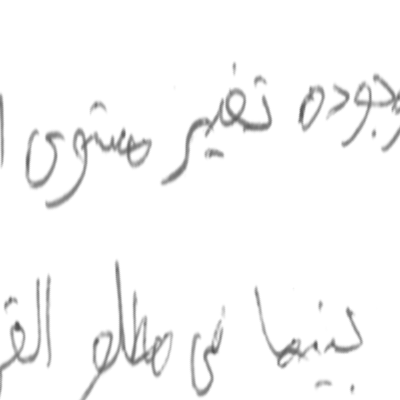 وجوده تغير مستوى ا
بينما في مطلع القر